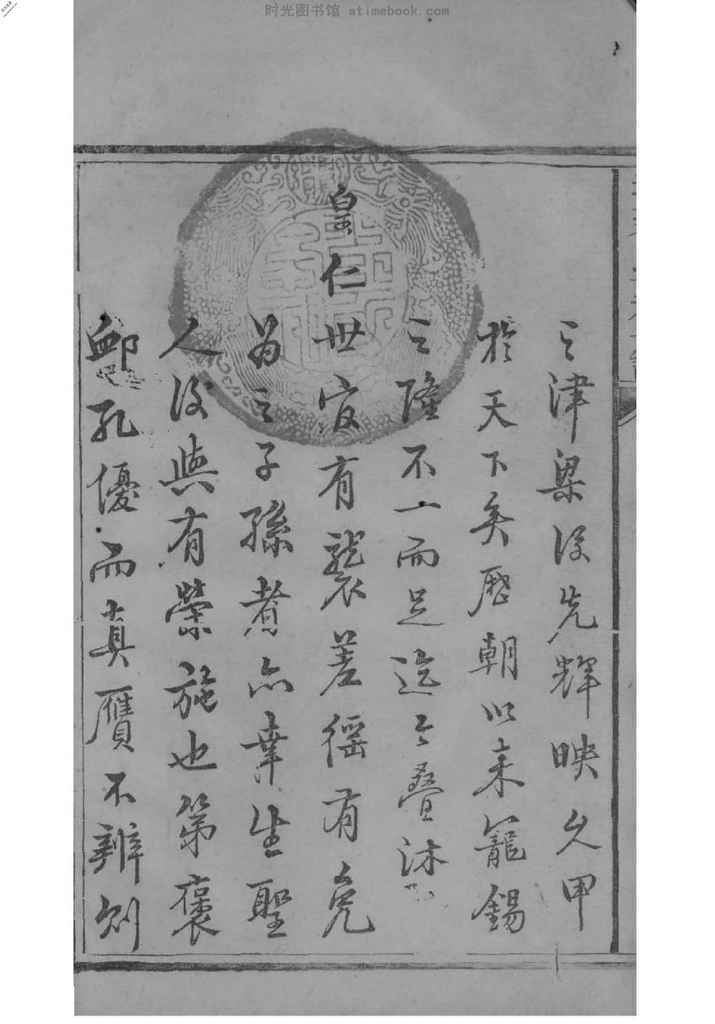 时光图书馆 atimebook.com
之津梁後先輝映久甲
於天下矣歷朝以来寵錫
之隆不一而足迄今疊沐
皇仁世官有襲差徭有免
為之子孫者亦幸生聖
人後與有榮施也第褒
䘏孔優而真贋不辨則